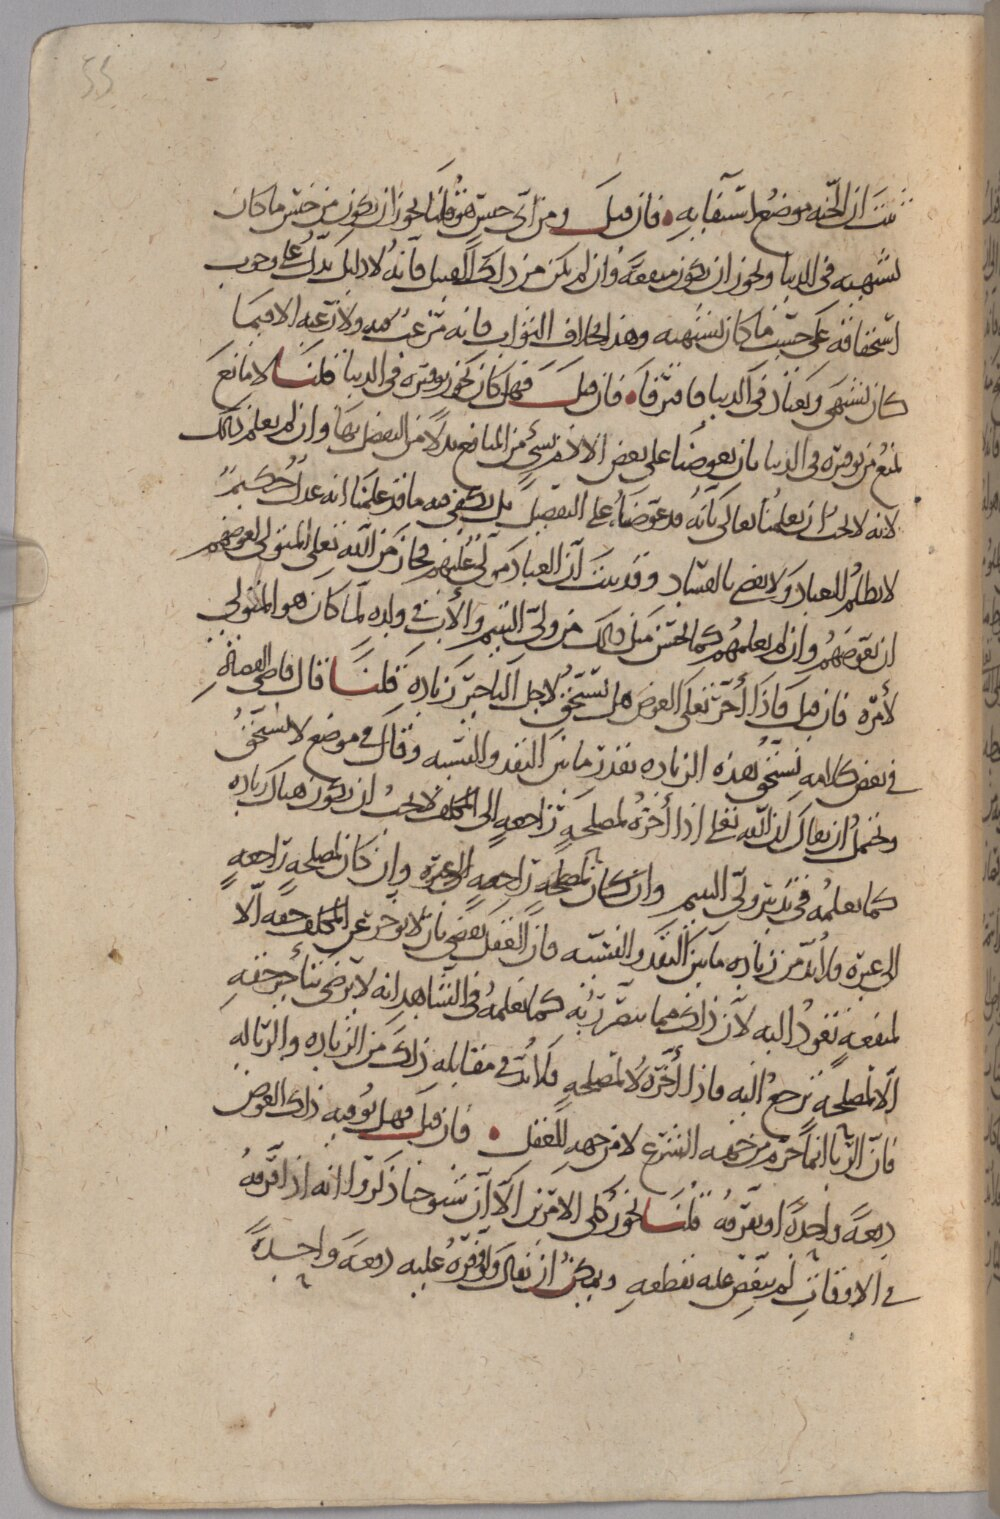 55
ثبت ان الجنه موضع استيفايه • فان قيل ومن اى جنس هو قلنا يجوز ان يكون من جنس ما كان
يشتهيه فى الدنيا ويجوز ان يكون منفعة وان لم يكن من ذلك القبيل فانه لا دليل يدل على وجوب
استحقاقه على حسب ما كان يشتهيه وهذا بخلاف الثواب فانه مرغب فيه ولا ترغبه الا فيما
كان يشتهى ويعتاد فى الدنيا فافترقا • فان قيل فهل كان يجوز توفيره فى الدنيا قلنا لا مانع
يمنع من توفيره فى الدنيا بان يعوضنا على بعض الالام بشىء من المنافع بدلا من التفضل بها وان لم يعلم ذلك
لانه لا يجب ان يعلمنا تعالى بانه قد عوضنا على التفصيل بل يكفى فيه ما قد علمنا انه عدل حكيم
لا يظلم العباد ولا يقضى بالفساد وقد بينت ان العباد مولى عليهم فجاز من الله تعالى المتولى لعوضهم
ان يعوضهم وان لم يعلمهم كما يحسن مثل ذلك من ولى اليتيم والاب فى ولده لما كان هو المتولى
لامره فان قيل فاذا أخر تعالى العوض هل يستحق لاجل التاخير زياده قلنا قال قاضى القضاة
فى بعض كلامه يستحق بهذه الزياده بقدر ما بين النقد والنسيه وقال فى موضع لا يستحق
ويحتمل ان يقال ان الله تعالى اذا أخره لمصلحة راجعة الى المكلف لا يجب ان يكون هناك زياده
كما يعلمه فى تدبير ولى اليتيم وان كان لمصلحة راجعة الى غيره وان كان لمصلحة راجعة
الى غيره فلا بد من زياده ما بين النقد والنسيه فان العقل يقضى بان لا يؤخر عن المكلف حقه الا
لمنفعة تعود اليه لان ذلك مما يتضرر به كما نعلمه فى الشاهد انه لا يرضى بتأخير حقه
الا لمصلحة ترجع اليه فاذا أخره لا لمصلحة فلا بد فى مقابله ذلك من الزياده والربا له
فان الربا انما حرم من جهه الشرع لا من جهه العقل • فان قيل فهل يوفيه ذلك العوض
دفعة واحدة او يفرقه قلنا يجوز كلى الامرين الا ان شيوخنا ذكروا انه اذا فرقه
فى الاوقات لم ينغص عليه بقطعه ويمكن ان يقال ولو وفره عليه دفعة واحدة